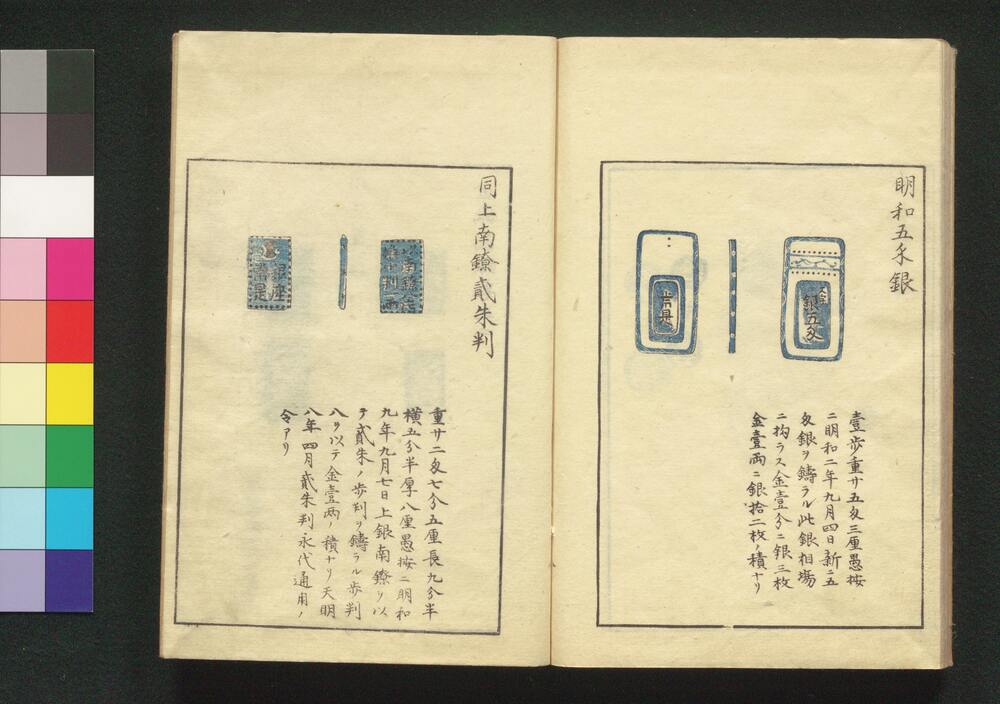 明和五匁銀
銀五匁
常是
壹歩重サ五匁三厘愚按
ニ明和二年九月四日新ニ五
匁銀ヲ鑄ラル此銀相塲
ニ拘ラス金壹分ニ銀三枚
金壹両ニ銀拾二枚ノ積ナリ
同上南鐐貳朱判
銀座
常是
重サ二匁七分五厘長九分半
横五分半厚八厘愚按ニ明和
九年九月七日上銀南鐐ヲ以
テ貳朱ノ歩判ヲ鑄ラル歩判
八ヲ以テ金壹両ノ積ナリ天明
八年四月貳朱判永代通用ノ
令アリ